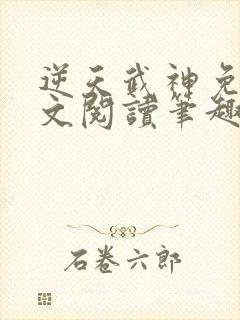 逆天武神免
文閱讀筆趣
石卷六郎